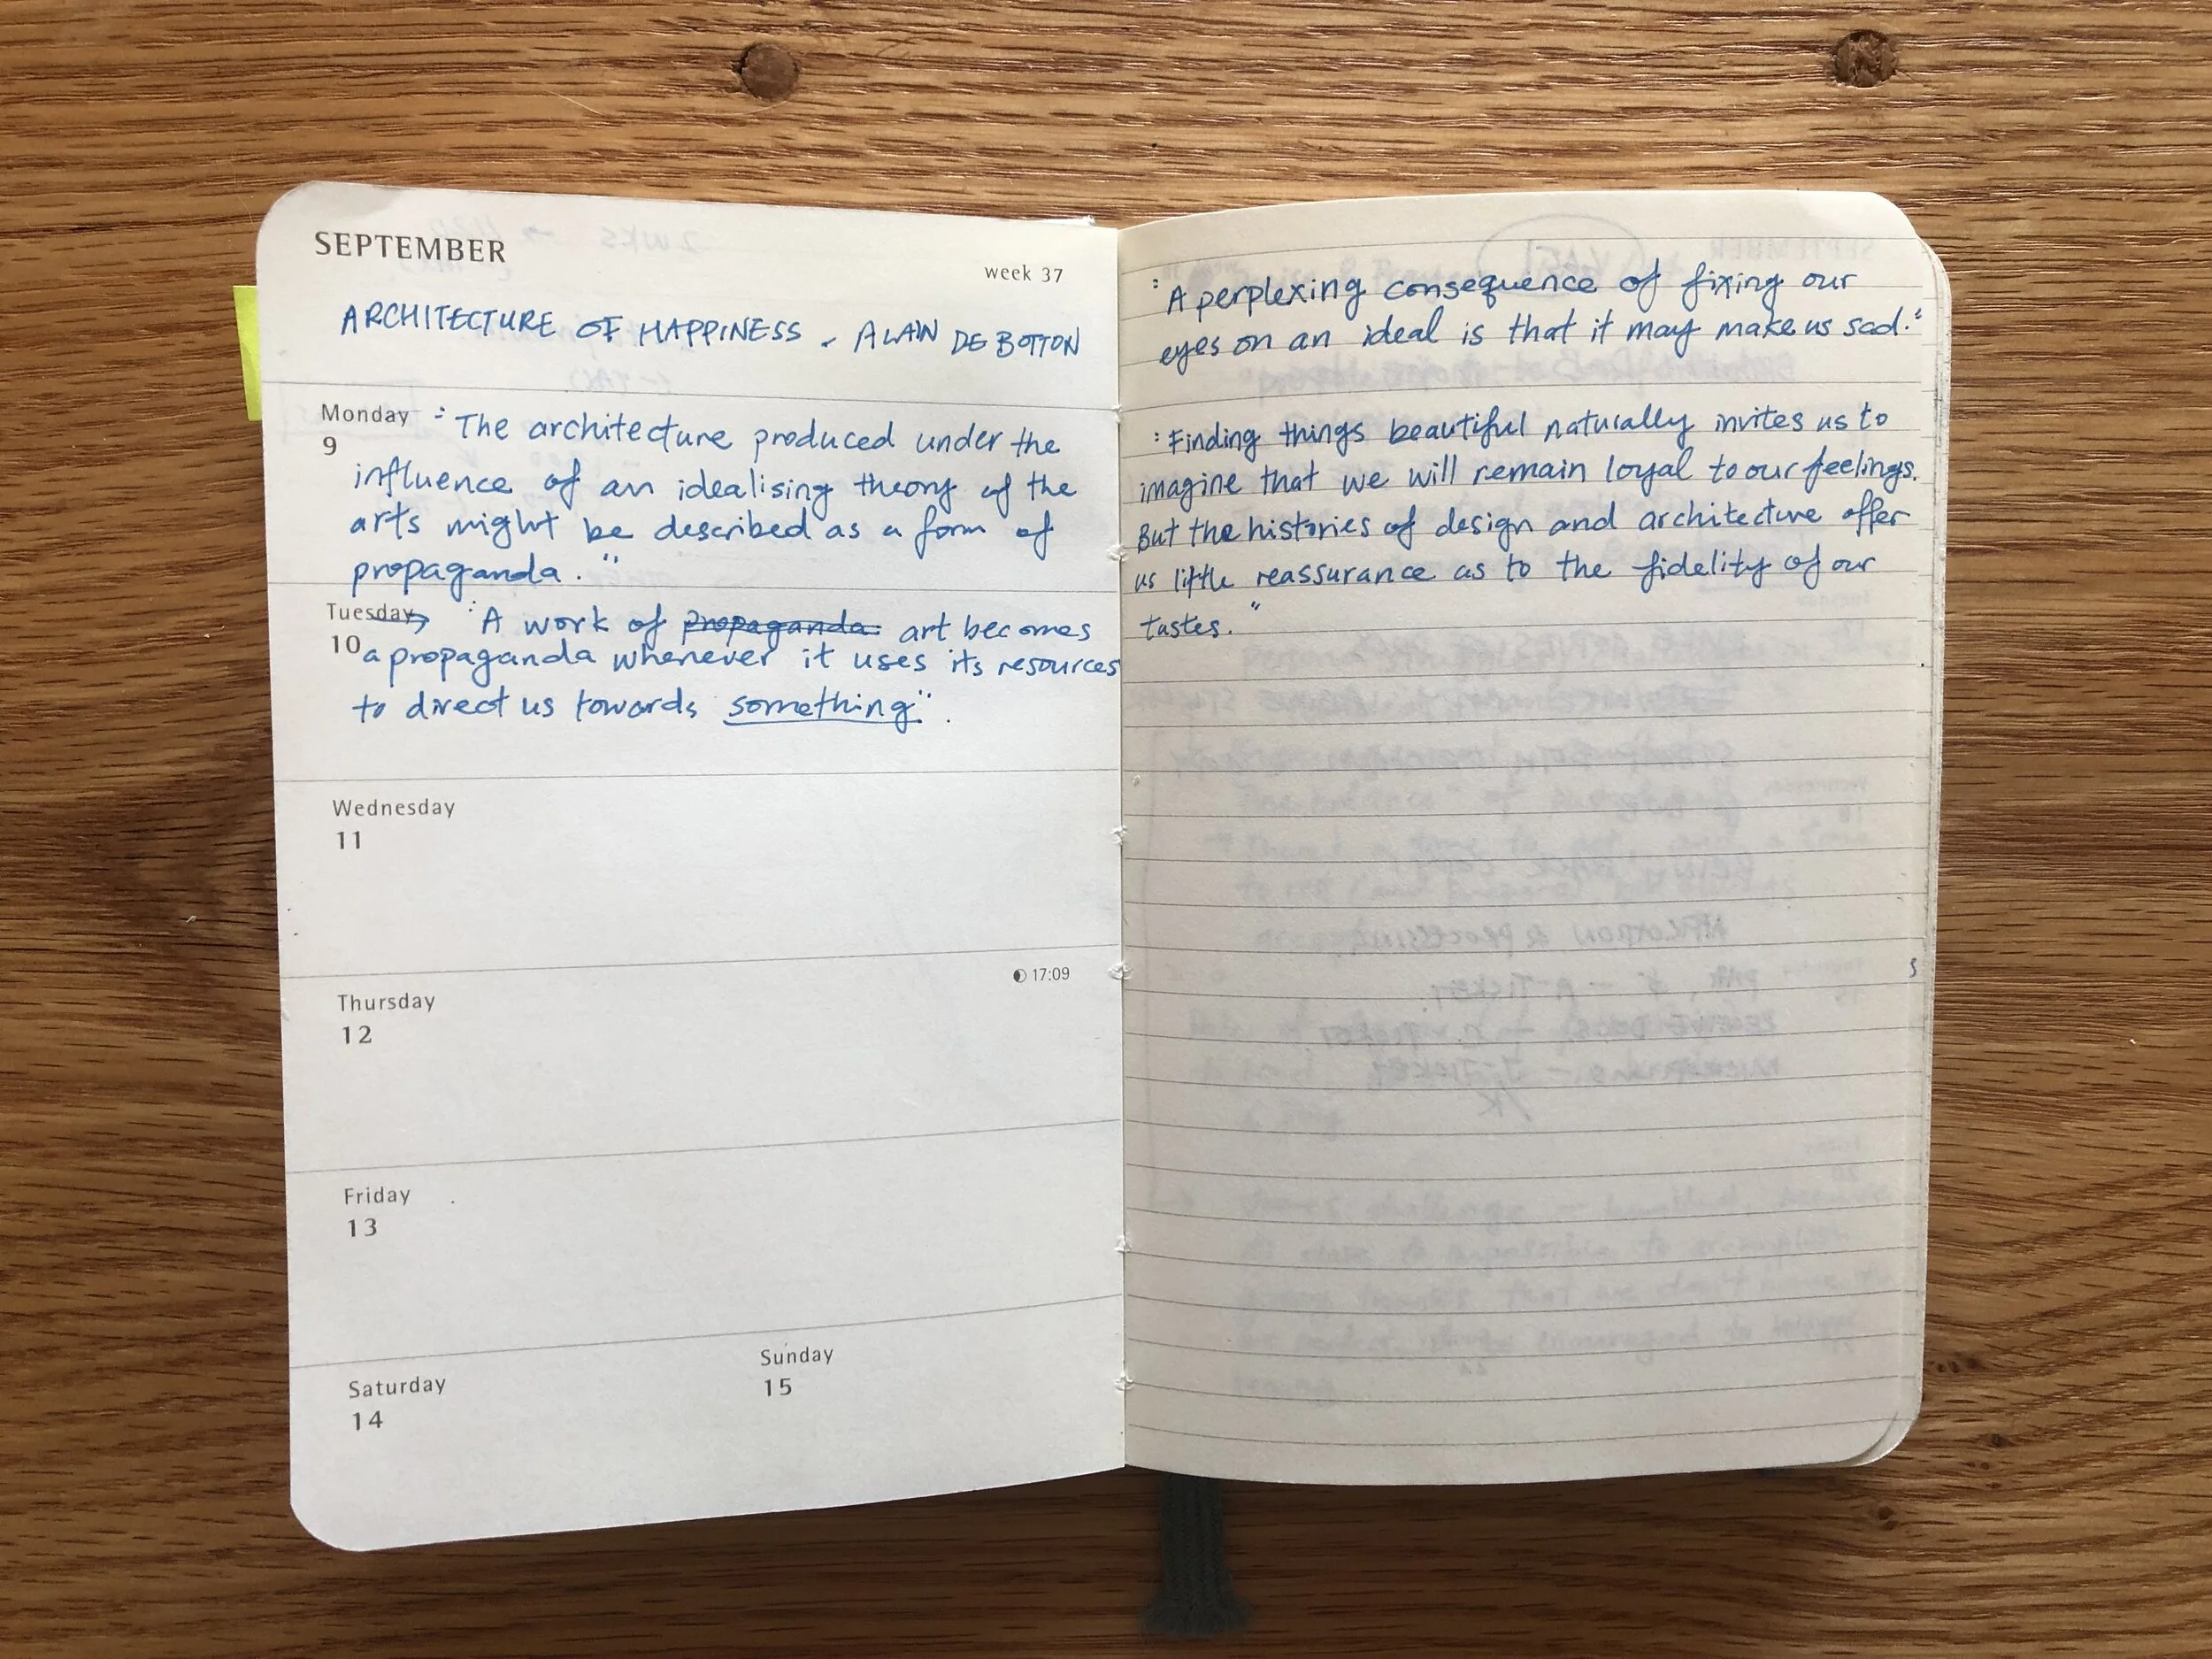 SEPTEMBER
week 37
ARCHITECTURE OF HAPPINESS - ALAIN DE BOTTON
Monday
9
"The architecture produced under the
influence of an idealising theory of the
arts might be described as a form of
propaganda."
Tuesday
10
"A work of propaganda art becomes
a propaganda whenever it uses its resources
to direct us towards something".
Wednesday
11
17:09
Thursday
12
Friday
13
Saturday
14
Sunday
15
"A perplexing consequence of fixing our
eyes on an ideal is that it may make us sad."
"Finding things beautiful naturally invites us to
imagine that we will remain loyal to our feelings.
But the histories of design and architecture offer
us little reassurance as to the fidelity of our
tastes."